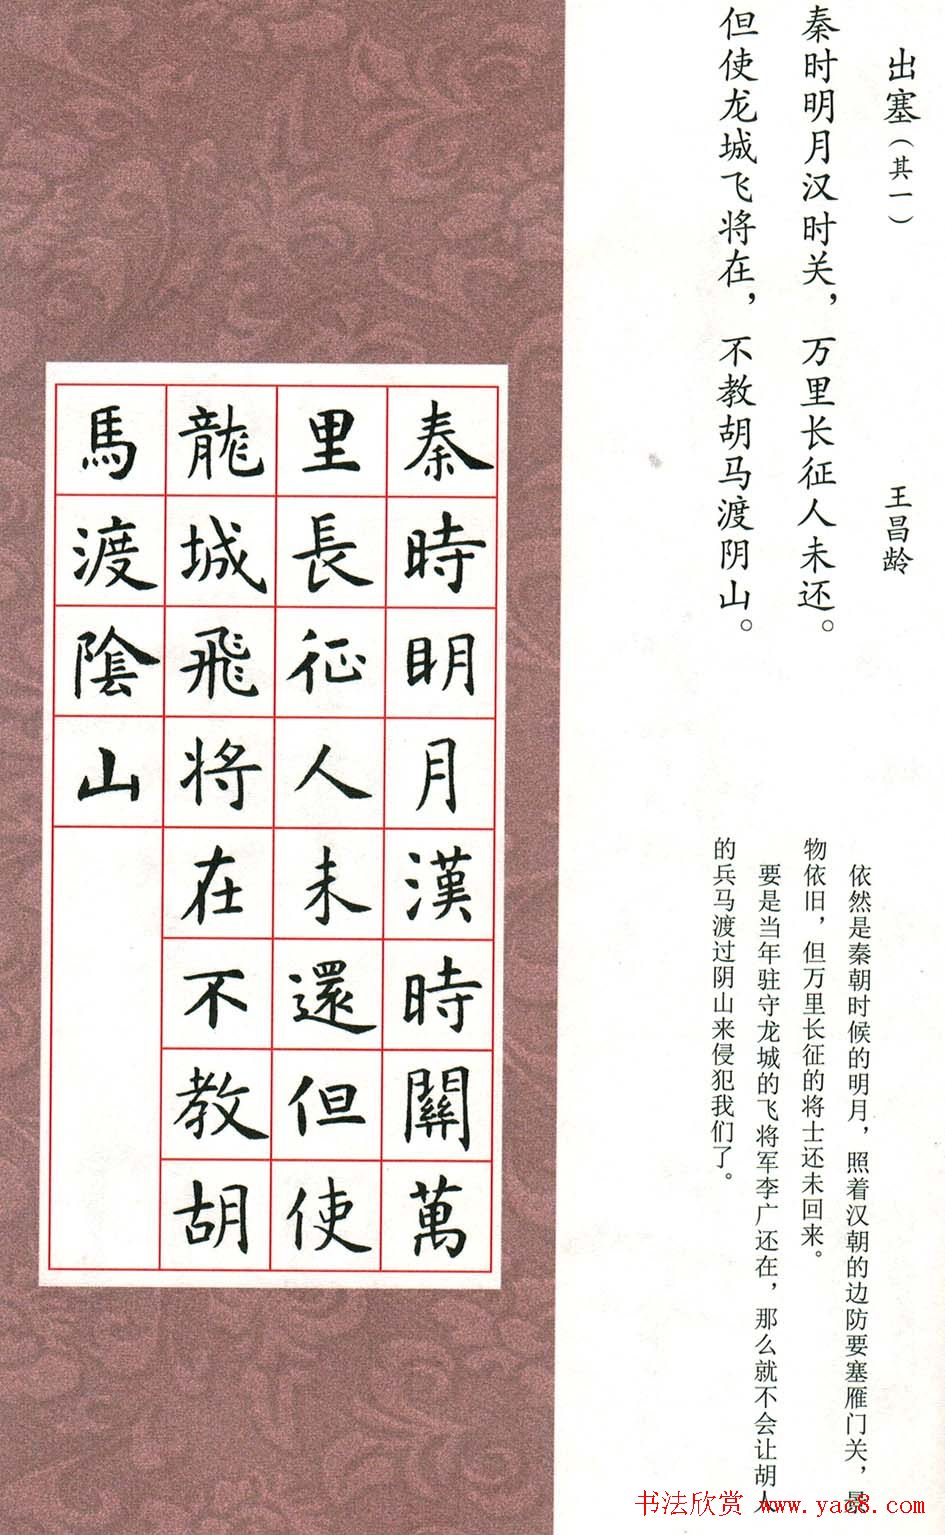 出塞（其一）
王昌龄
秦时明月汉时关，万里长征人未还。
但使龙城飞将在，不教胡马渡阴山。
依然是秦朝时候的明月，照着汉朝的边防要塞雁门关，景
物依旧，但万里长征的将士还未回来。
要是当年驻守龙城的飞将军李广还在，那么就不会让胡人
的兵马渡过阴山来侵犯我们了。
秦時明月漢時關萬
里長征人未還但使
龍城飛將在不教胡
馬渡陰山
书法欣赏 www.yac8.com